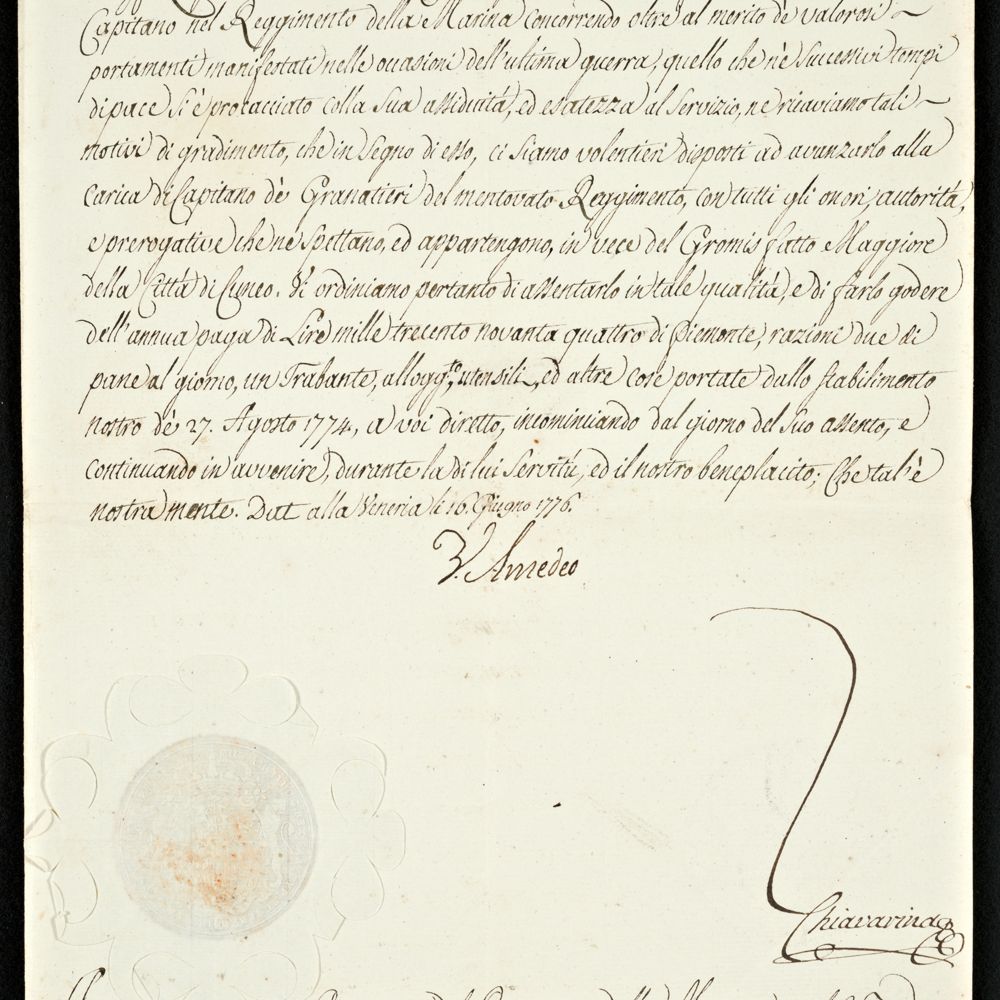 Capitano nel Reggimento della Marina concorrendo oltre al merito de valorosi
portamenti manifestati nelle occasioni dell'ultima guerra, quello che nè successivi tempi
di pace si è procacciato colla sua assiduità, ed esatezza al servizio, ne ricaviamo tali
motivi di gradimento, che in segno di esso, ci siamo volentieri disposti ad avanzarlo alla
Carica di Capitano dè Granatieri del mentovato Reggimento, con tutti gli onori, autorità,
e prerogative che ne spettano, ed appartengono, in vece del Gromis fatto Maggiore
della Città di Cuneo. Vi ordiniamo pertanto di assentarlo in tale qualità, e di farlo godere
dell'annua paga di Lire mille trecento novanta quattro di Piemonte, razioni due di
pane al giorno, un Trabante, allogg.o, utensili, ed altre cose portate dallo stabilimento
nostro dè 27. Agosto 1774, a voi diretto, incominciando dal giorno del suo assento, e
continuando in avvenire, durante la di lui servitù, ed il nostro beneplacito; Che tal'è
nostra mente. Dat alla Veneria li 16. Giugno 1776.
V. Amedeo
Chiavarina